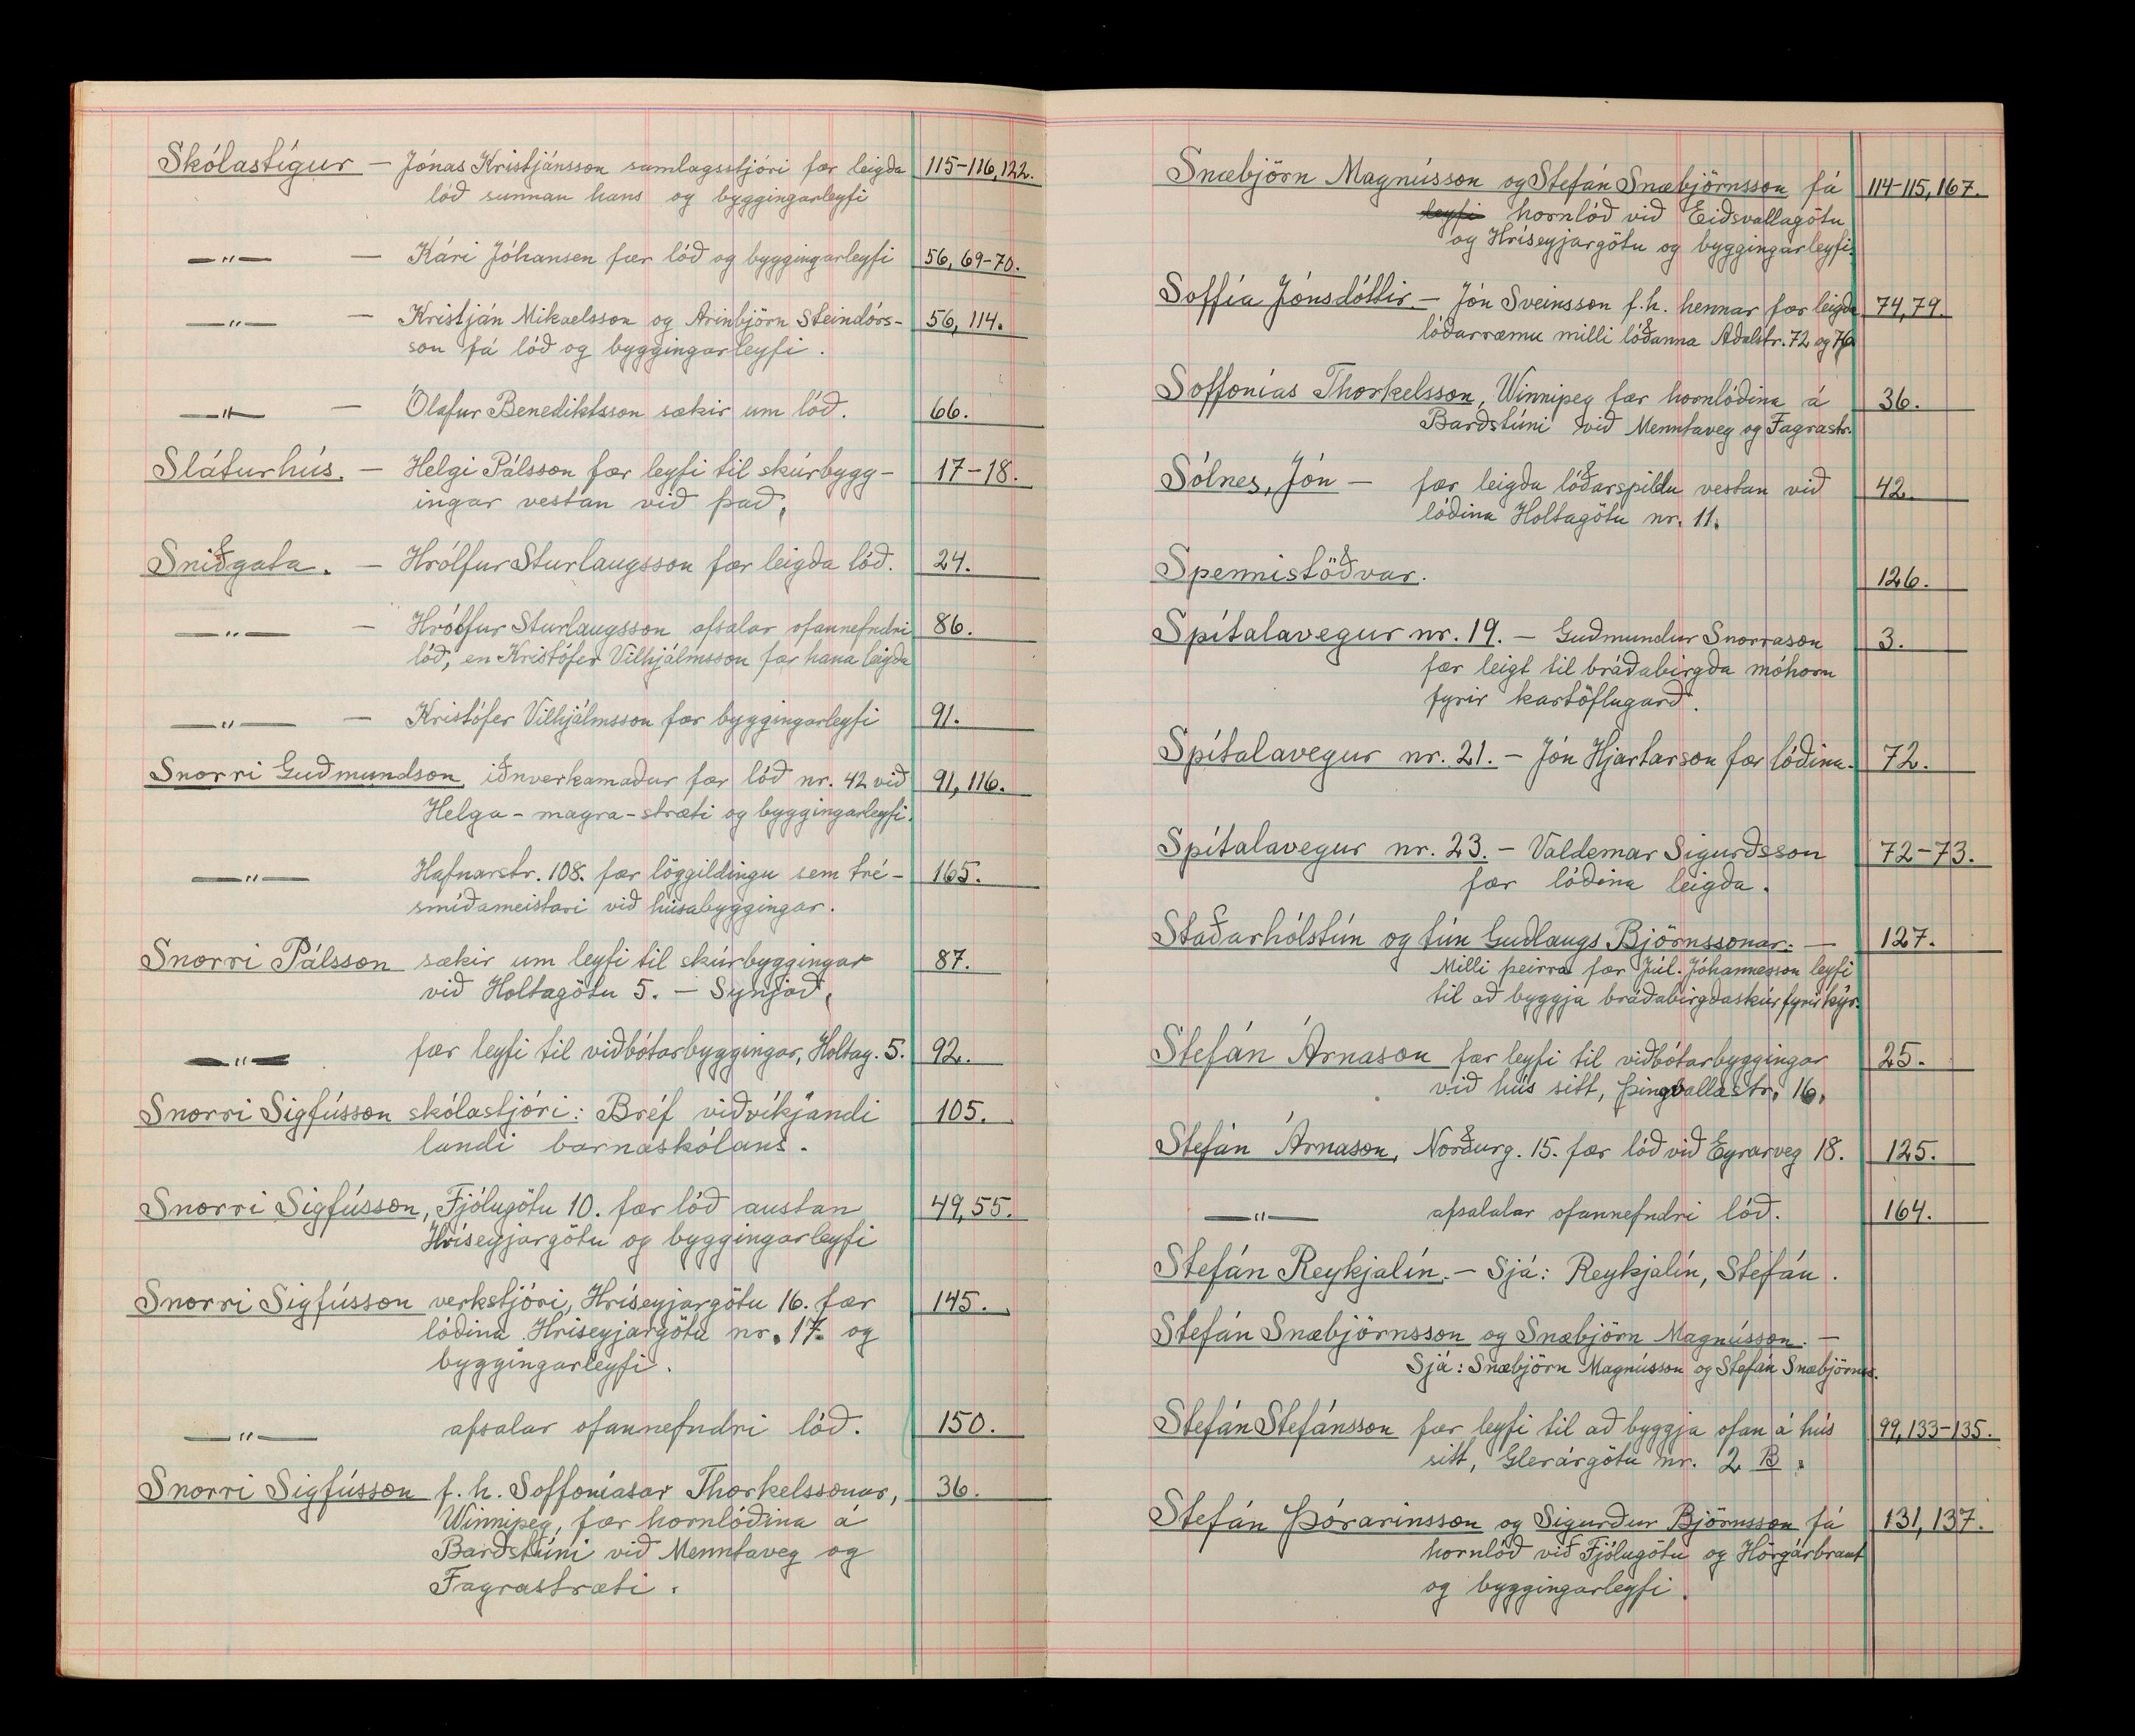 Skólastígur — Jónas Kristjánsson samlagsstjóri fær leigða 115-116, 122.
lóð sunnan hans og byggingarleyfi
—"— — Kári Jóhansen fær lóð og byggingarleyfi 56, 69-70.
—"— — Kristján Mikaelsson og Arinbjörn Steindórs- 56, 114.
son fá lóð og byggingarleyfi.
—"— — Ólafur Benediktsson sækir um lóð. 66.
Sláturhús. — Helgi Pálsson fær leyfi til skúrbygg- 17-18.
ingar vestan við það.
Sniðgata. — Hrólfur Sturlaugsson fær leigða lóð. 24.
—"— — Hrólfur Sturlaugsson afsalar ofannefndri 86.
lóð, en Kristófer Vilhjálmsson fær hana leigða
—"— — Kristófer Vilhjálmsson fær byggingarleyfi 91.
Snorri Guðmundson iðnverkamaður fær lóð nr. 42 við 91, 116.
Helga-magra-stræti og byggingarleyfi.
—"— Hafnarstr. 108. fær löggildingu sem tré- 165.
smíðameistari við húsabyggingar.
Snorri Pálsson sækir um leyfi til skúrbyggingar 87.
við Holtagötu 5. — Synjað.
—"— fær leyfi til viðbótarbyggingar, Holtag. 5. 92.
Snorri Sigfússon skólastjóri: Bréf viðvíkjandi 105.
landi barnaskólans.
Snorri Sigfússon, Fjólugötu 10. fær lóð austan 49, 55.
Hríseyjargötu og byggingarleyfi
Snorri Sigfússon verkstjóri, Hríseyjargötu 16. fær 145.
lóðina Hríseyjargötu nr. 17. og
byggingarleyfi.
—"— afsalar ofannefndri lóð. 150.
Snorri Sigfússon f. h. Soffoníasar Thorkelssonar, 36.
Winnipeg, fær hornlóðina á
Barðstúni við Menntaveg og
Fagrastræti.
Snæbjörn Magnússon og Stefán Snæbjörnsson fá 114-115, 167.
leyfi hornlóð við Eiðsvallagötu
og Hríseyjargötu og byggingarleyfi.
Soffía Jónsdóttir — Jón Sveinsson f.h. hennar fær leigða 74, 79.
lóðarræmu milli lóðanna Aðalstr. 72 og 76
Soffonías Thorkelsson, Winnipeg fær hornlóðina á 36.
Barðstúni við Menntaveg og Fagrastr.
Sólnes, Jón — fær leigða lóðarspildu vestan við 42.
lóðina Holtagötu nr. 11.
Spennistöðvar. 126.
Spítalavegur nr. 19. — Guðmundur Snorrason 3.
fær leigt til bráðabirgða móhorn
fyrir kartöflugarð.
Spítalavegur nr. 21. — Jón Hjartarson fær lóðina. 72.
Spítalavegur nr. 23. — Valdemar Sigurðsson 72-73.
fær lóðina leigða.
Staðarhólstún og tún Guðlaugs Björnssonar. — 127.
Milli þeirra fær Júl. Jóhannesson leyfi
til að byggja bráðabirgðaskúr fyrir kýr.
Stefán Árnason fær leyfi til viðbótarbyggingar 25.
við hús sitt, Þingvallastr. 16.
Stefán Árnason, Norðurg. 15. fær lóð við Eyrarveg 18. 125.
—"— afsalalar ofannefndri lóð. 164.
Stefán Reykjalín. — Sjá: Reykjalín, Stefán.
Stefán Snæbjörnsson og Snæbjörn Magnússon. —
Sjá: Snæbjörn Magnússon og Stefán Snæbjörnss.
Stefán Stefánsson fær leyfi til að byggja ofan á hús 99, 133-135.
sitt, Glerárgötu nr. 2 B.
Stefán Þórarinsson og Sigurður Björnsson fá 131, 137.
hornlóð við Fjólugötu og Hörgárbraut
og byggingarleyfi.